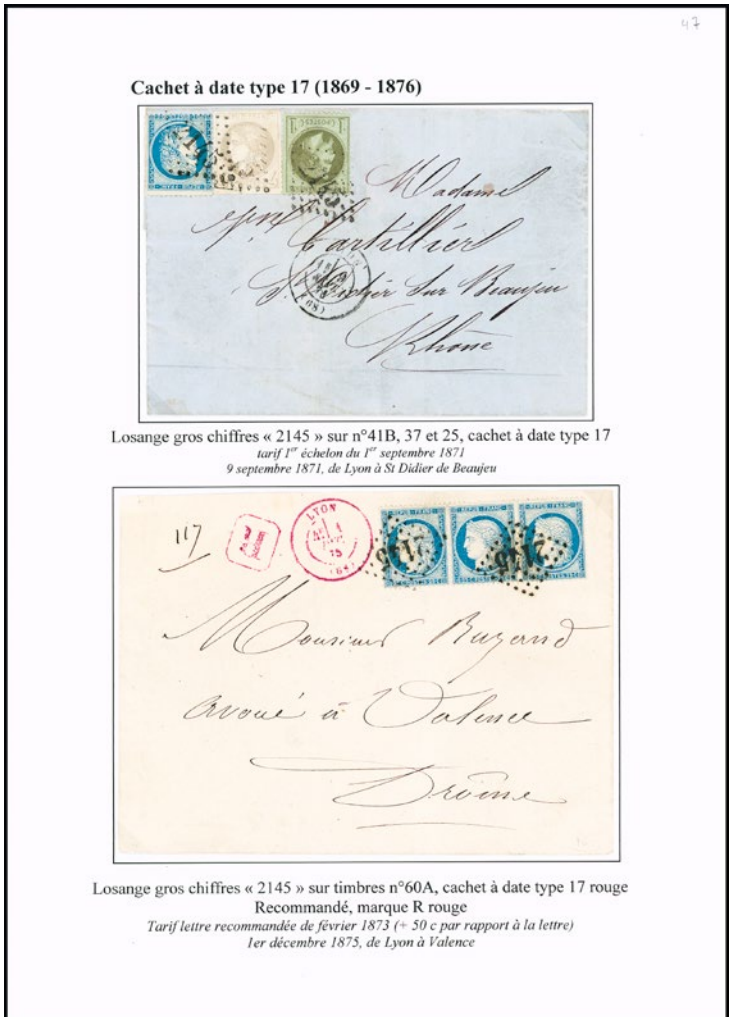 47
Cachet à date type 17 (1869 - 1876)
2145
Madame
Cartillier
St Didier sur Beaujeu
Rhône
Losange gros chiffres « 2145 » sur n°41B, 37 et 25, cachet à date type 17
tarif 1er échelon du 1er septembre 1871
9 septembre 1871, de Lyon à St Didier de Beaujeu
117
LYON
75
REPUB. FRANC. REPUB. FRANC. REPUB. FRANC.
2145 2145
Monsieur
avoué à Valence
Drôme
Losange gros chiffres « 2145 » sur timbres n°60A, cachet à date type 17 rouge
Recommandé, marque R rouge
Tarif lettre recommandée de février 1873 (+ 50 c par rapport à la lettre)
1er décembre 1875, de Lyon à Valence